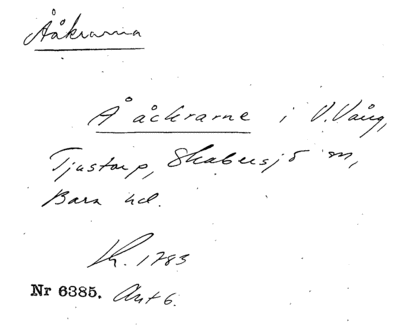 Ååkrarna
Å åckrarne i V. Vång,
Tjustorp, Skabersjö sn,
Bara hd.
Kr. 1783
Nr 6385. Akt 6.